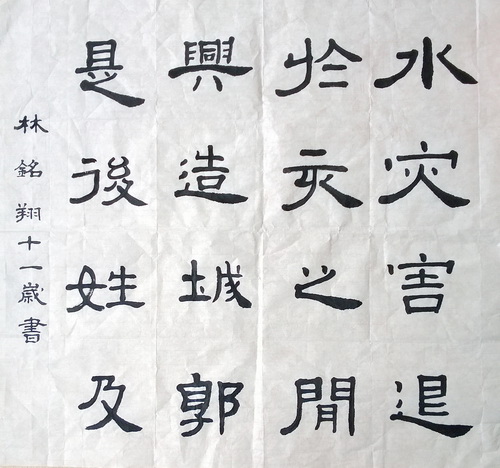 水灾害退
於亥之閒
興造城郭
是後姓及
林銘翔十一歲書